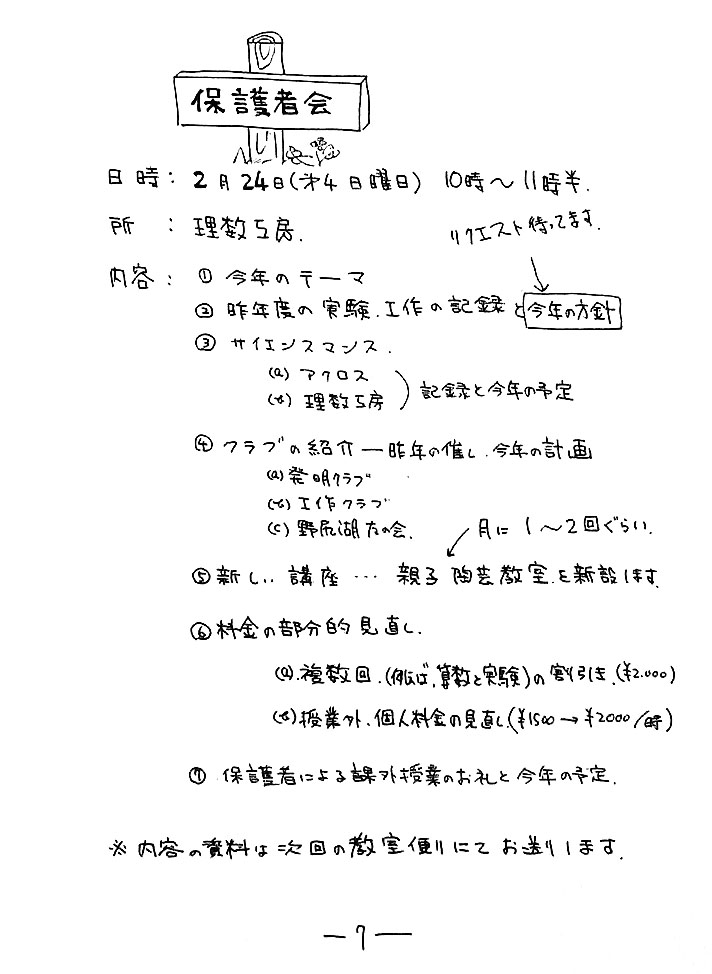 保護者会
日時: 2月24日(才4日曜日) 10時〜11時半.
所 : 理数工房.
リクエスト待ってます.
内容: ① 今年のテーマ
② 昨年度の実験.工作の記録と今年の方針
③ サイエンスマンス.
(a) アクロス
(b) 理数工房
記録と今年の予定
④ クラブの紹介―昨年の催し.今年の計画
(a) 発明クラブ
(b) 工作クラブ
(c) 野尻湖友の会.
月に1〜2回ぐらい.
⑤ 新しい講座… 親子陶芸教室.を新設します
⑥ 料金の部分的見直し.
(a).複数回.(例えば,算数と実験)の割引き.(¥2.000)
(b) 授業外.個人料金の見直し(¥1500→¥2000/時)
⑦ 保護者による課外授業のお礼と今年の予定.
※内容の資料は次回の教室便りにてお送りします.
―7―